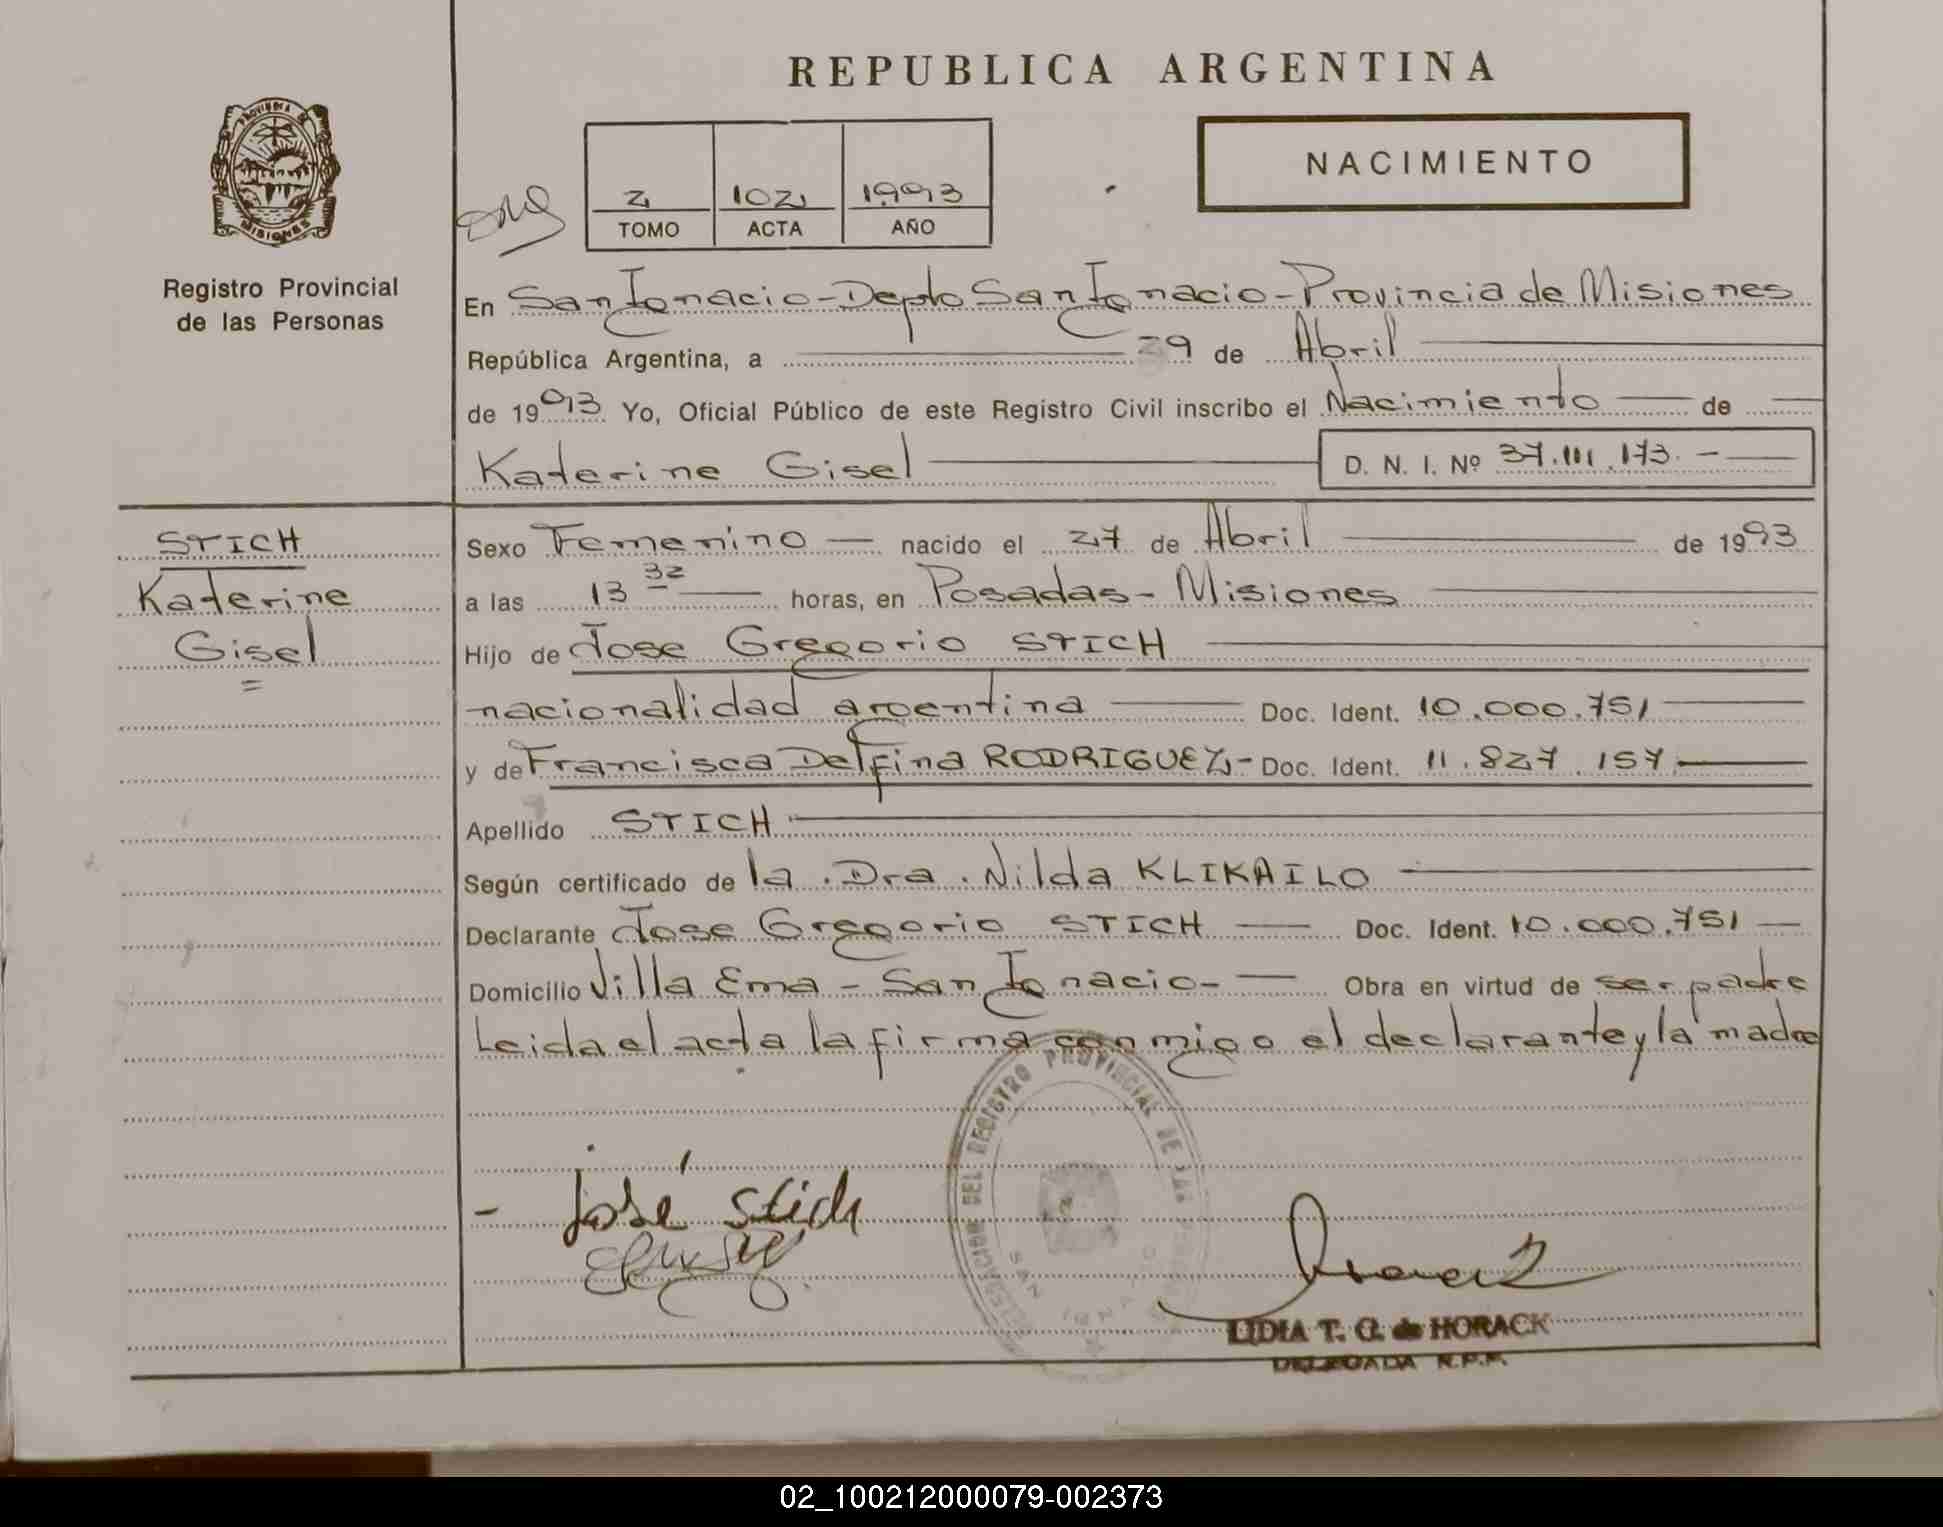 REPUBLICA ARGENTINA
PROVINCIA DE MISIONES
NACIMIENTO
2 102 1993
TOMO ACTA AÑO
Registro Provincial
de las Personas
En San Ignacio - Depto San Ignacio - Provincia de Misiones
República Argentina, a 29 de Abril
de 1993 Yo, Oficial Público de este Registro Civil inscribo el Nacimiento de
Katerine Gisel D. N. I. Nº 37.111.173.-
STICH
Katerine
Gisel
Sexo Femenino nacido el 27 de Abril de 1993
a las 13 32 horas, en Posadas - Misiones
Hijo de Jose Gregorio STICH
nacionalidad argentina Doc. Ident. 10.000.751
y de Francisca Delfina RODRIGUEZ - Doc. Ident. 11.827.157
Apellido STICH
Según certificado de la Dra. Nilda KLIKAILO
Declarante Jose Gregorio STICH Doc. Ident. 10.000.751
Domicilio Villa Ema - San Ignacio - Obra en virtud de ser padre
Leida el acta la firma conmigo el declarante y la madre
DELEGACION DEL REGISTRO PROVINCIAL DE LAS
SAN IGNACIO
- José Stich
LIDIA T. G. de HORACK
DELEGADA R.P.P.
02_100212000079-002373